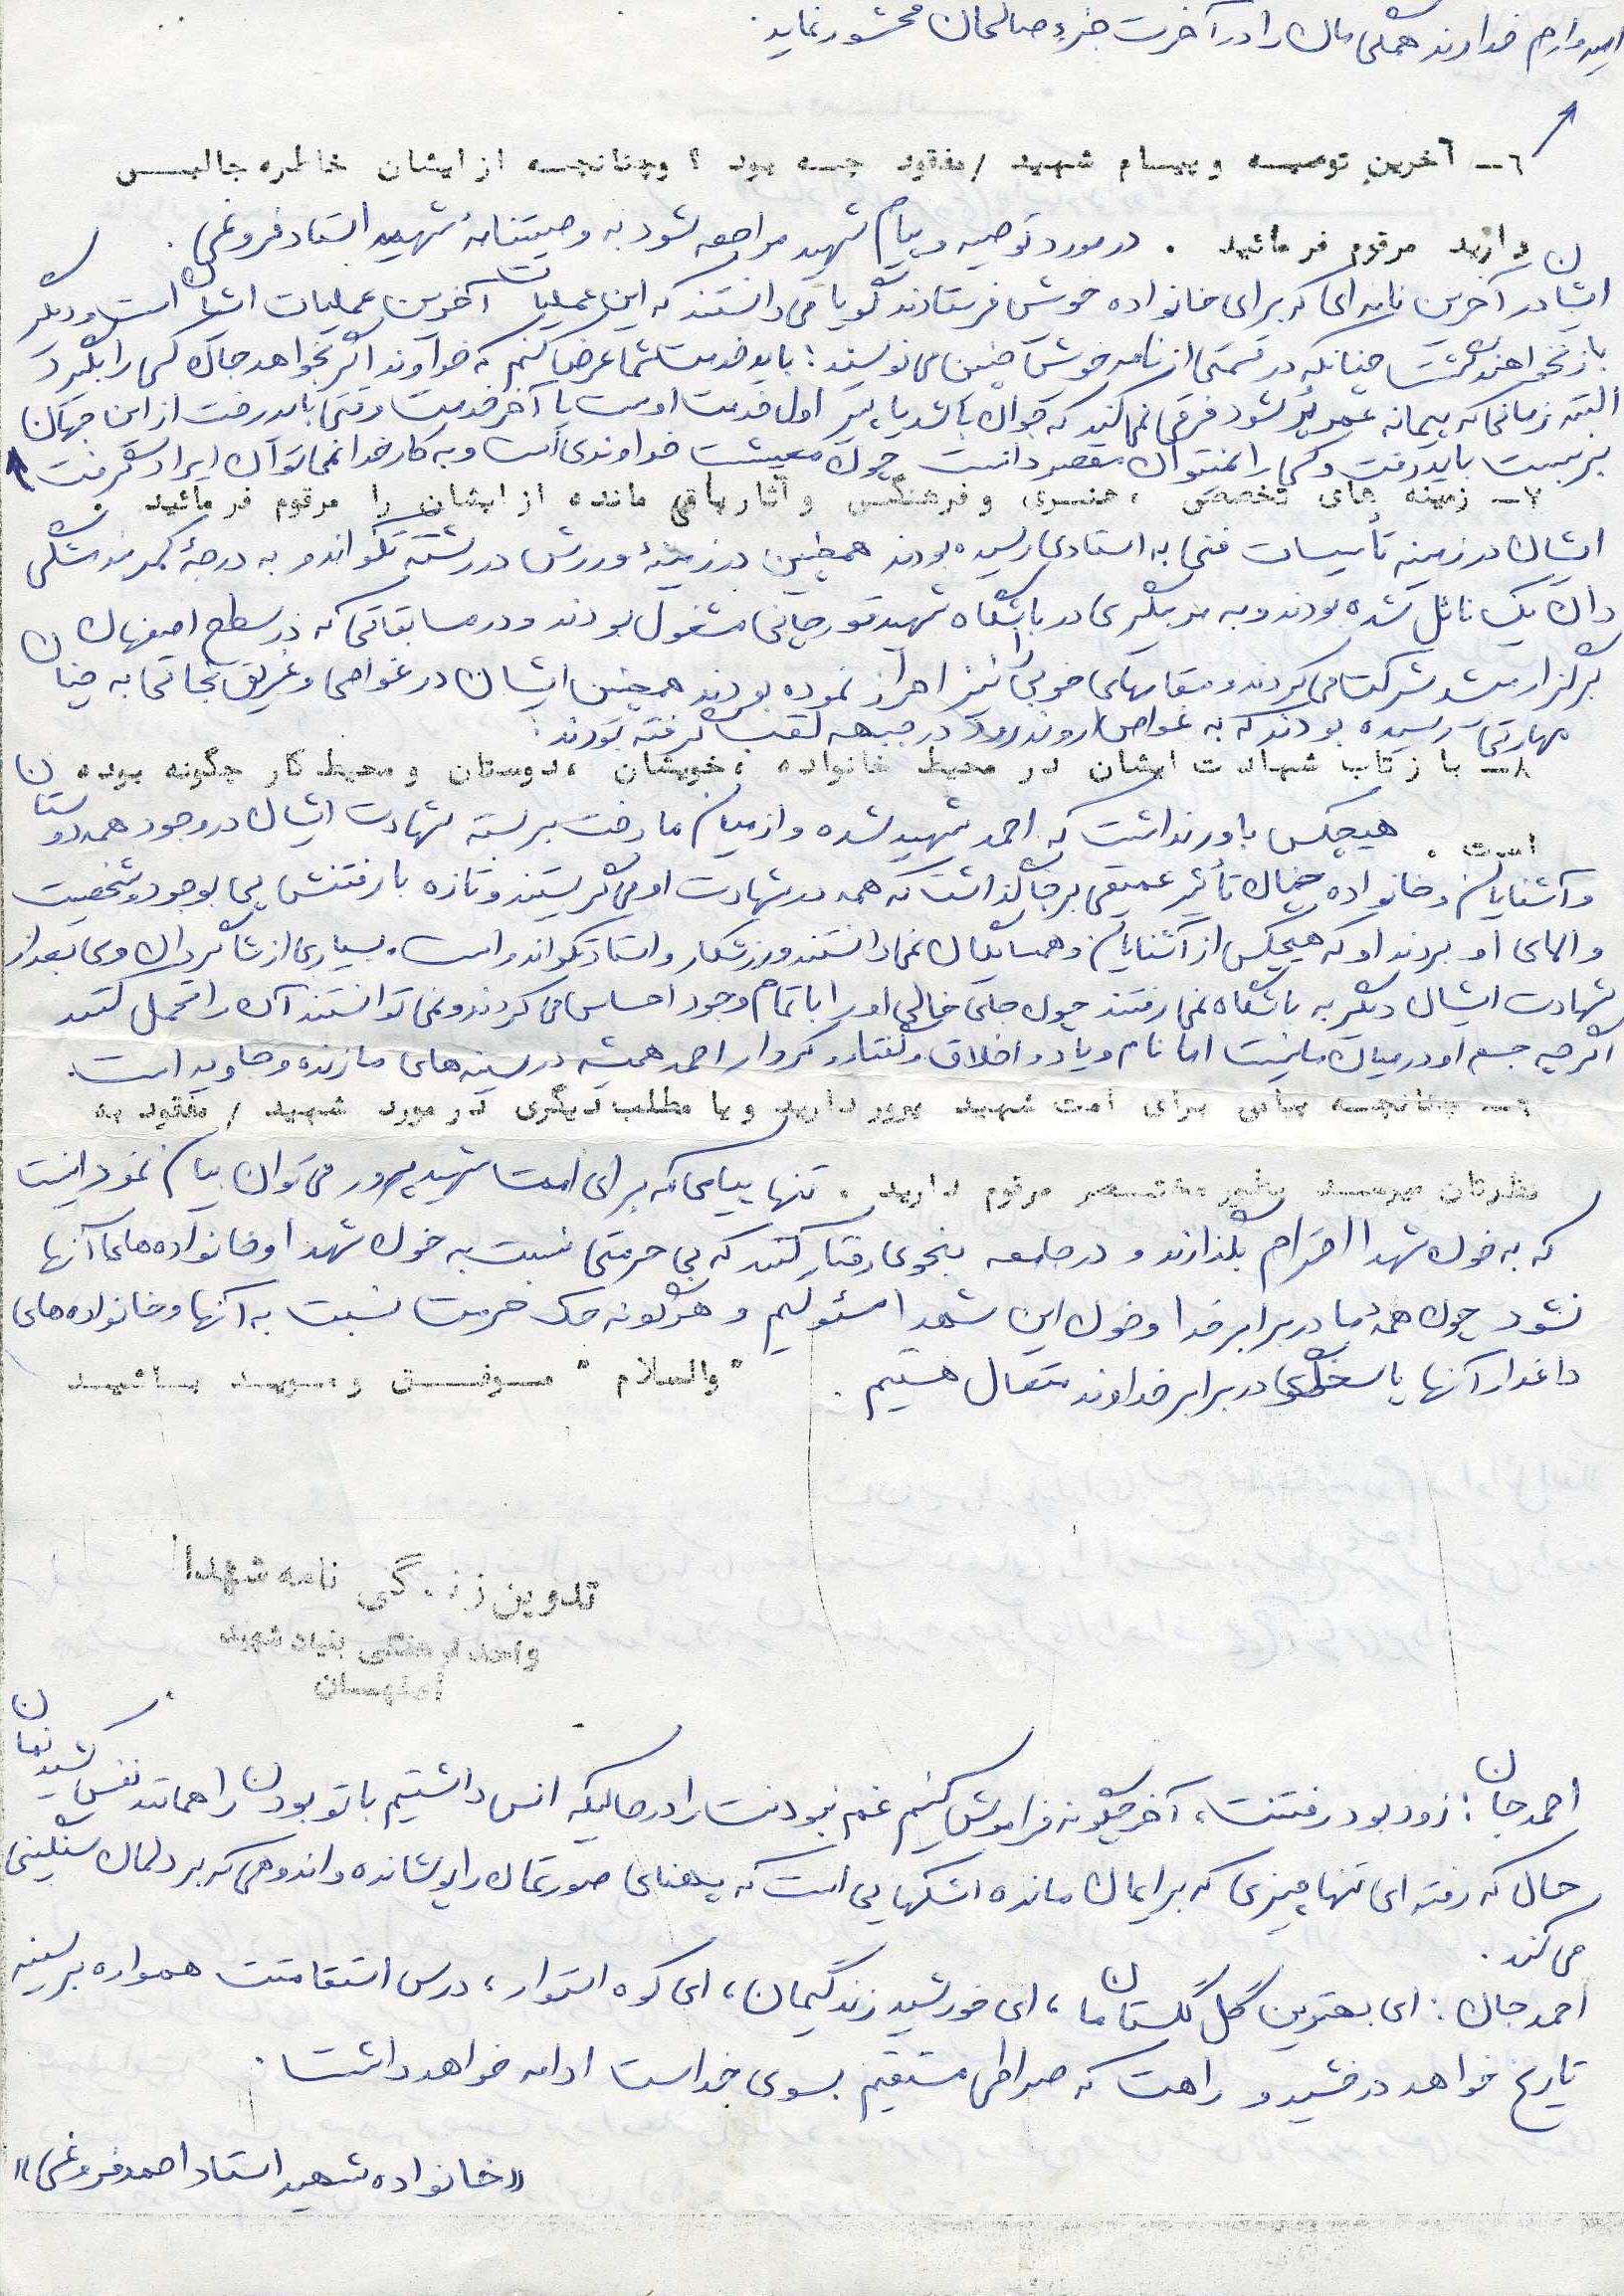 امیدوارم خداوند همگی مان را در آخرت جزء صالحان محشور نماید.
٦ــ آخرین توصیـه و پیـام شهیـد /مفقود چـه بود ؟ وچنانچـه از ایشان خاطره جالبـی
دارید مرقوم فرمائید . در مورد توصیه و پیام شهید مراجعه شود به وصیتنامهٔ شهید استاد فروغی.
ایشان در آخرین نامه ای که برای خانواده خویش فرستادند گویا می دانستند که این عملیات آخرین عملیات ایشان است و دیگر
باز نخواهند گشت چنانکه در قسمتی از نامه خویش چنین می نویسند: باید خدمت شما عرض کنم که خداوند اگر بخواهد جان کسی را بگیرد
البته زمانی که پیمانه عمر پُر شود فرقی نمی کند که جوان باشد یا پیر اول خدمت اوست یا آخر خدمت وقتی باید رفت از این جهان
بربست باید رفت و کسی را نمیتوان مقصر دانست چون مشیت خداوندی است و به کار خدا نمی توان ایراد گرفت
۷ــ زمینه های تخصصی ، هنـری وفرهنگـی وآثارباقی مانده از ایشان را مرقوم فرمائید .
ایشان در زمینه تأسیسات فنی به استادی رسیده بودند همچنین در زمینهٔ ورزش در رشته تکواندو به درجهٔ کمربند مشکی
دان یک نائل شده بودند و به مربیگری در باشگاه شهید قورچانی مشغول بودند و در مسابقاتی که در سطح اصفهان
برگزار میشد شرکت می کردند و مقامهای خوبی را نیز احراز نموده بودند همچنین ایشان در غواصی و غریق نجاتی به چنان
مهارتی رسیده بودند که به غواص اروندرود در جبهه لقب گرفته بودند.
۸ــ بازتاب شهادت ایشان در محیط خانواده ،خویشان ،دوستان ومحیط کار چگونه بوده
است . هیچکس باور نداشت که احمد شهید شده و از میان ما رخت بربسته شهادت ایشان در وجود همه دوستان
و آشنایان و خانواده چنان تأثیر عمیقی برجا گذاشت که همه در شهادت او می گریستند و تازه با رفتنش پی به وجود و شخصیت
والای او بردند او که هیچکس از آشنایان و همسایگان نمی دانستند ورزشکار و استاد تکواندو است. بسیاری از شاگردان وی بعد از
شهادت ایشان دیگر به باشگاه نمی رفتند چون جای خالی او را با تمام وجود احساس می کردند و نمی توانستند آن را تحمل کنند
اگر چه جسم او در میان ما نیست اما نام و یاد و اخلاق و گفتار و کردار احمد همیشه در سینه های ما زنده و جاوید است.
۹ــ چنانچـه پیامی برای امت شهید پرور دارید ویا مطلب دیگری در مورد شهید / مفقود به
نظرتان میرسـد بطور مختصـر مرقوم دارید . تنها پیامی که برای امت شهید پرور می توان بیان نمود اینست
که به خون شهدا احترام بگذارند و در جامعه بنحوی رفتار کنند که بی حرمتی نسبت به خون شهدا و خانواده های آنها
نشود چون همهٔ ما در برابر خدا و خون این شهدا مسئولیم و هرگونه هتک حرمت نسبت به آنها و خانواده های
داغدار آنها پاسخگوی در برابر خداوند متعال هستیم.
"والسلام" مـوفـق ومـویـد بـاشیـد
تدوین زندگی نامه شهدا
واحد فرهنگی بنیاد شهید
اصفهـان
احمد جان: زود بود رفتنت، آخر چگونه فراموش کنیم غم نبودنت را در حالیکه انس داشتیم با تو بودن را همانند نفس کشیدنمان
حال که رفته ای تنها چیزی که برایمان مانده اشکهایی است که پهنای صورتمان را پوشانده و اندوهی که بر دلمان سنگینی
می کند.
احمد جان: ای بهترین گل گلستان ما، ای خورشید زندگیمان، ای کوه استوار، درس استقامتت همواره بر سینه
تاریخ خواهد درخشید و راهت که صراطی مستقیم بسوی خداست ادامه خواهد داشت.
«خانواده شهید استاد احمد فروغی»